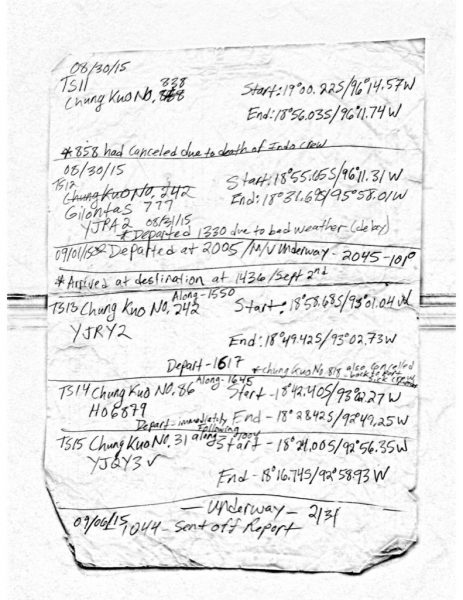 08/30/15
TS11 838
Chung Kuo No. Start: 19°00.22S/96°14.57W
End: 18°56.03S/96°11.74W
*858 had canceled due to death of Indo crew
08/30/15
TS12 Start: 18°55.05S/96°11.31W
Chung Kuo No. 242 End: 18°31.69S/95°58.01W
Gilontas 777
YJPA2 08/31/15
*Departed 1330 due to bad weather (delay)
09/01/15 Departed at 2005/M/V Underway - 2045 - 101°
*Arrived at destination at 1436/Sept 2nd
Along-1550
TS13 Chung Kuo No. 242 Start: 18°58.68S/93°01.04W
YJRY2
End: 18°49.42S/93°02.73W
Depart - 1617
*Chung Kuo No. 818 also cancelled
- back to port
sick crew
Along-1645
TS14 Chung Kuo No. 86 Start - 18°42.40S/93°02.27W
HO6879
Depart - immediately End - 18°28.42S/92°49.25W
Following
TS15 Chung Kuo No. 31 along Start - 18°24.00S/92°56.35W
YJQY3 ✓
End - 18°16.74S/92°58.93W
- Underway - 2131
09/06/15 1044 - Sent off Report